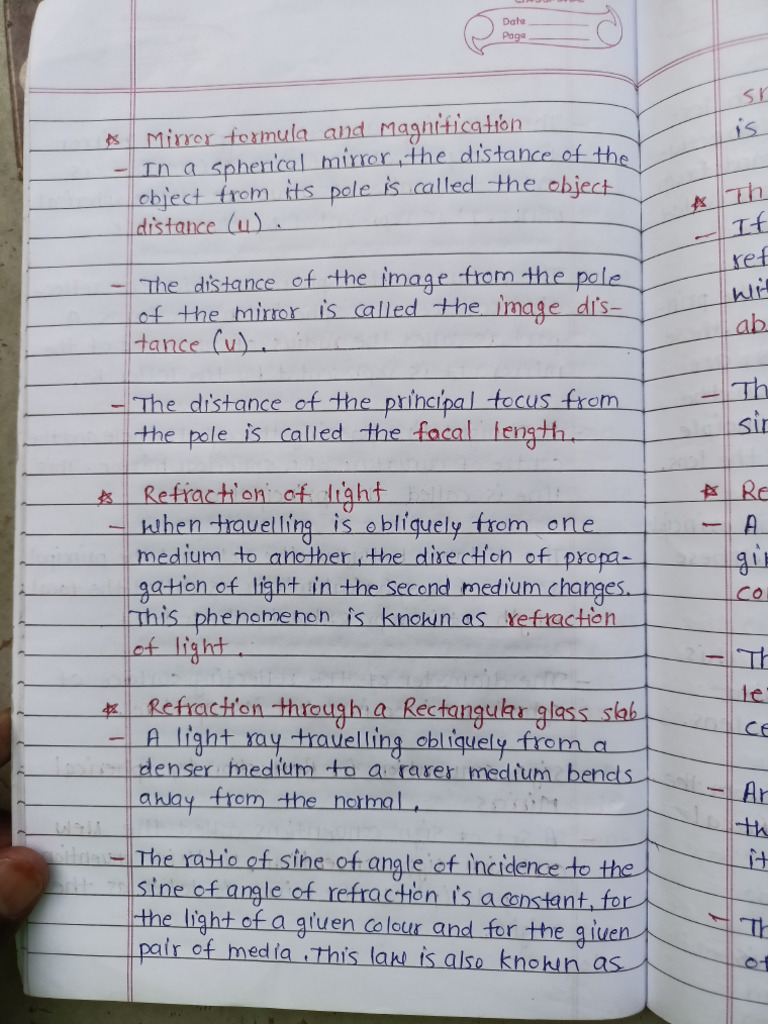 Date
Page
☆ Mirror formula and Magnification
- In a spherical mirror, the distance of the
object from its pole is called the object
distance (u).
- The distance of the image from the pole
of the mirror is called the image dis-
tance (v).
- The distance of the principal focus from
the pole is called the focal length.
☆ Refraction of light
- When travelling is obliquely from one
medium to another, the direction of propa-
gation of light in the second medium changes.
This phenomenon is known as refraction
of light.
☆ Refraction through a Rectangular glass slab
- A light ray travelling obliquely from a
denser medium to a rarer medium bends
away from the normal.
- The ratio of sine of angle of incidence to the
sine of angle of refraction is a constant, for
the light of a given colour and for the given
pair of media. This law is also known as
is
☆ Th
- If
ref
wit
ab
- Th
sin
☆ Re
- A
gin
co
- Th
le
ce
- An
th
it
- Th
of